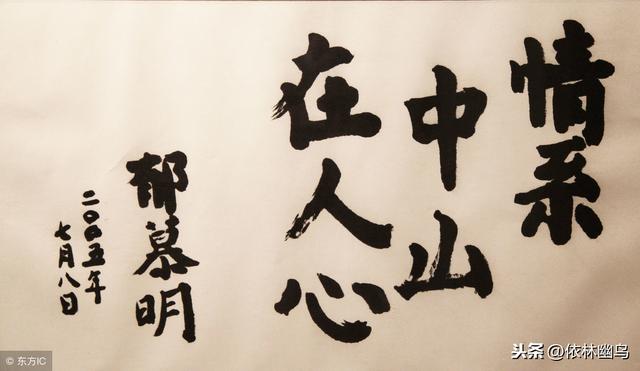 情系
中山
在人心
郁慕明
二〇〇五年
七月八日
© 东方IC
头条 @依林幽鸟